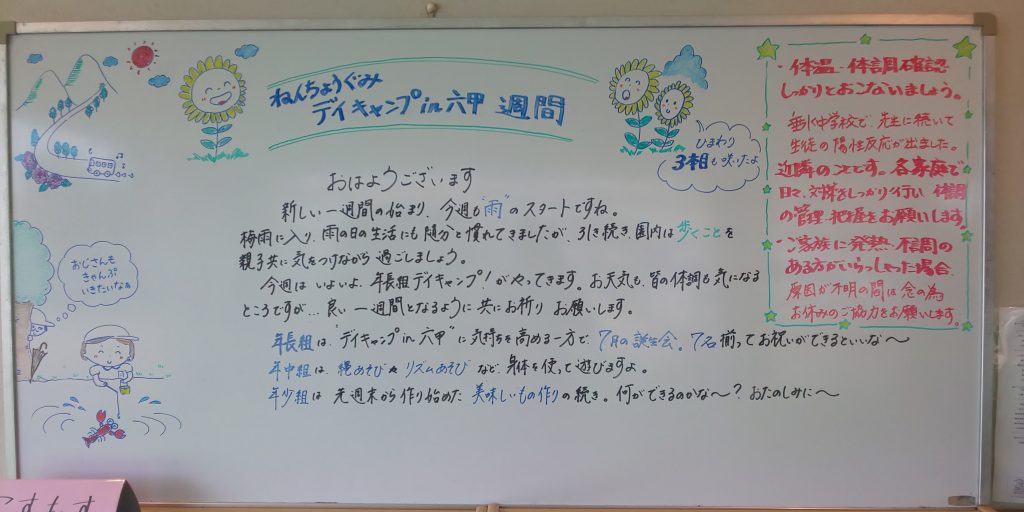 ねんちょうぐみ
デイキャンプin六甲 週間
ひまわり
3本目も咲いたよ
おはようございます
新しい一週間の始まり、今週も"雨"のスタートですね。
梅雨に入り、雨の日の生活にも随分と慣れてきましたが、引き続き、園内は歩くことを
親子共に気をつけながら過ごしましょう。
今週はいよいよ、年長組デイキャンプ！がやってきます。お天気も、皆の体調も気になる
ところですが…良い一週間となるように共にお祈りお願いします。
年長組は、"デイキャンプin六甲"に気持ちを高める一方で、7月の誕生会。7名揃ってお祝いができるといいな〜
年中組は、縄あそびやリズムあそびなど、身体を使って遊びますよ。
年少組は先週末から作り始めた美味しいもの作りの続き。何ができるのかな〜？おたのしみに〜
おじさんも
きゃんぷ
いきたいなぁ
・体温・体調確認
しっかりとおこないましょう。
垂水中学校で、先生に続いて
生徒の陽性反応が出ました。
近隣のことです。各家庭で
日々、対策をしっかり行い、体調
の管理・把握をお願いします。
・ご家族に発熱・不調の
ある方がいらっしゃった場合、
原因が不明の間は念の為
お休みのご協力をお願いします。